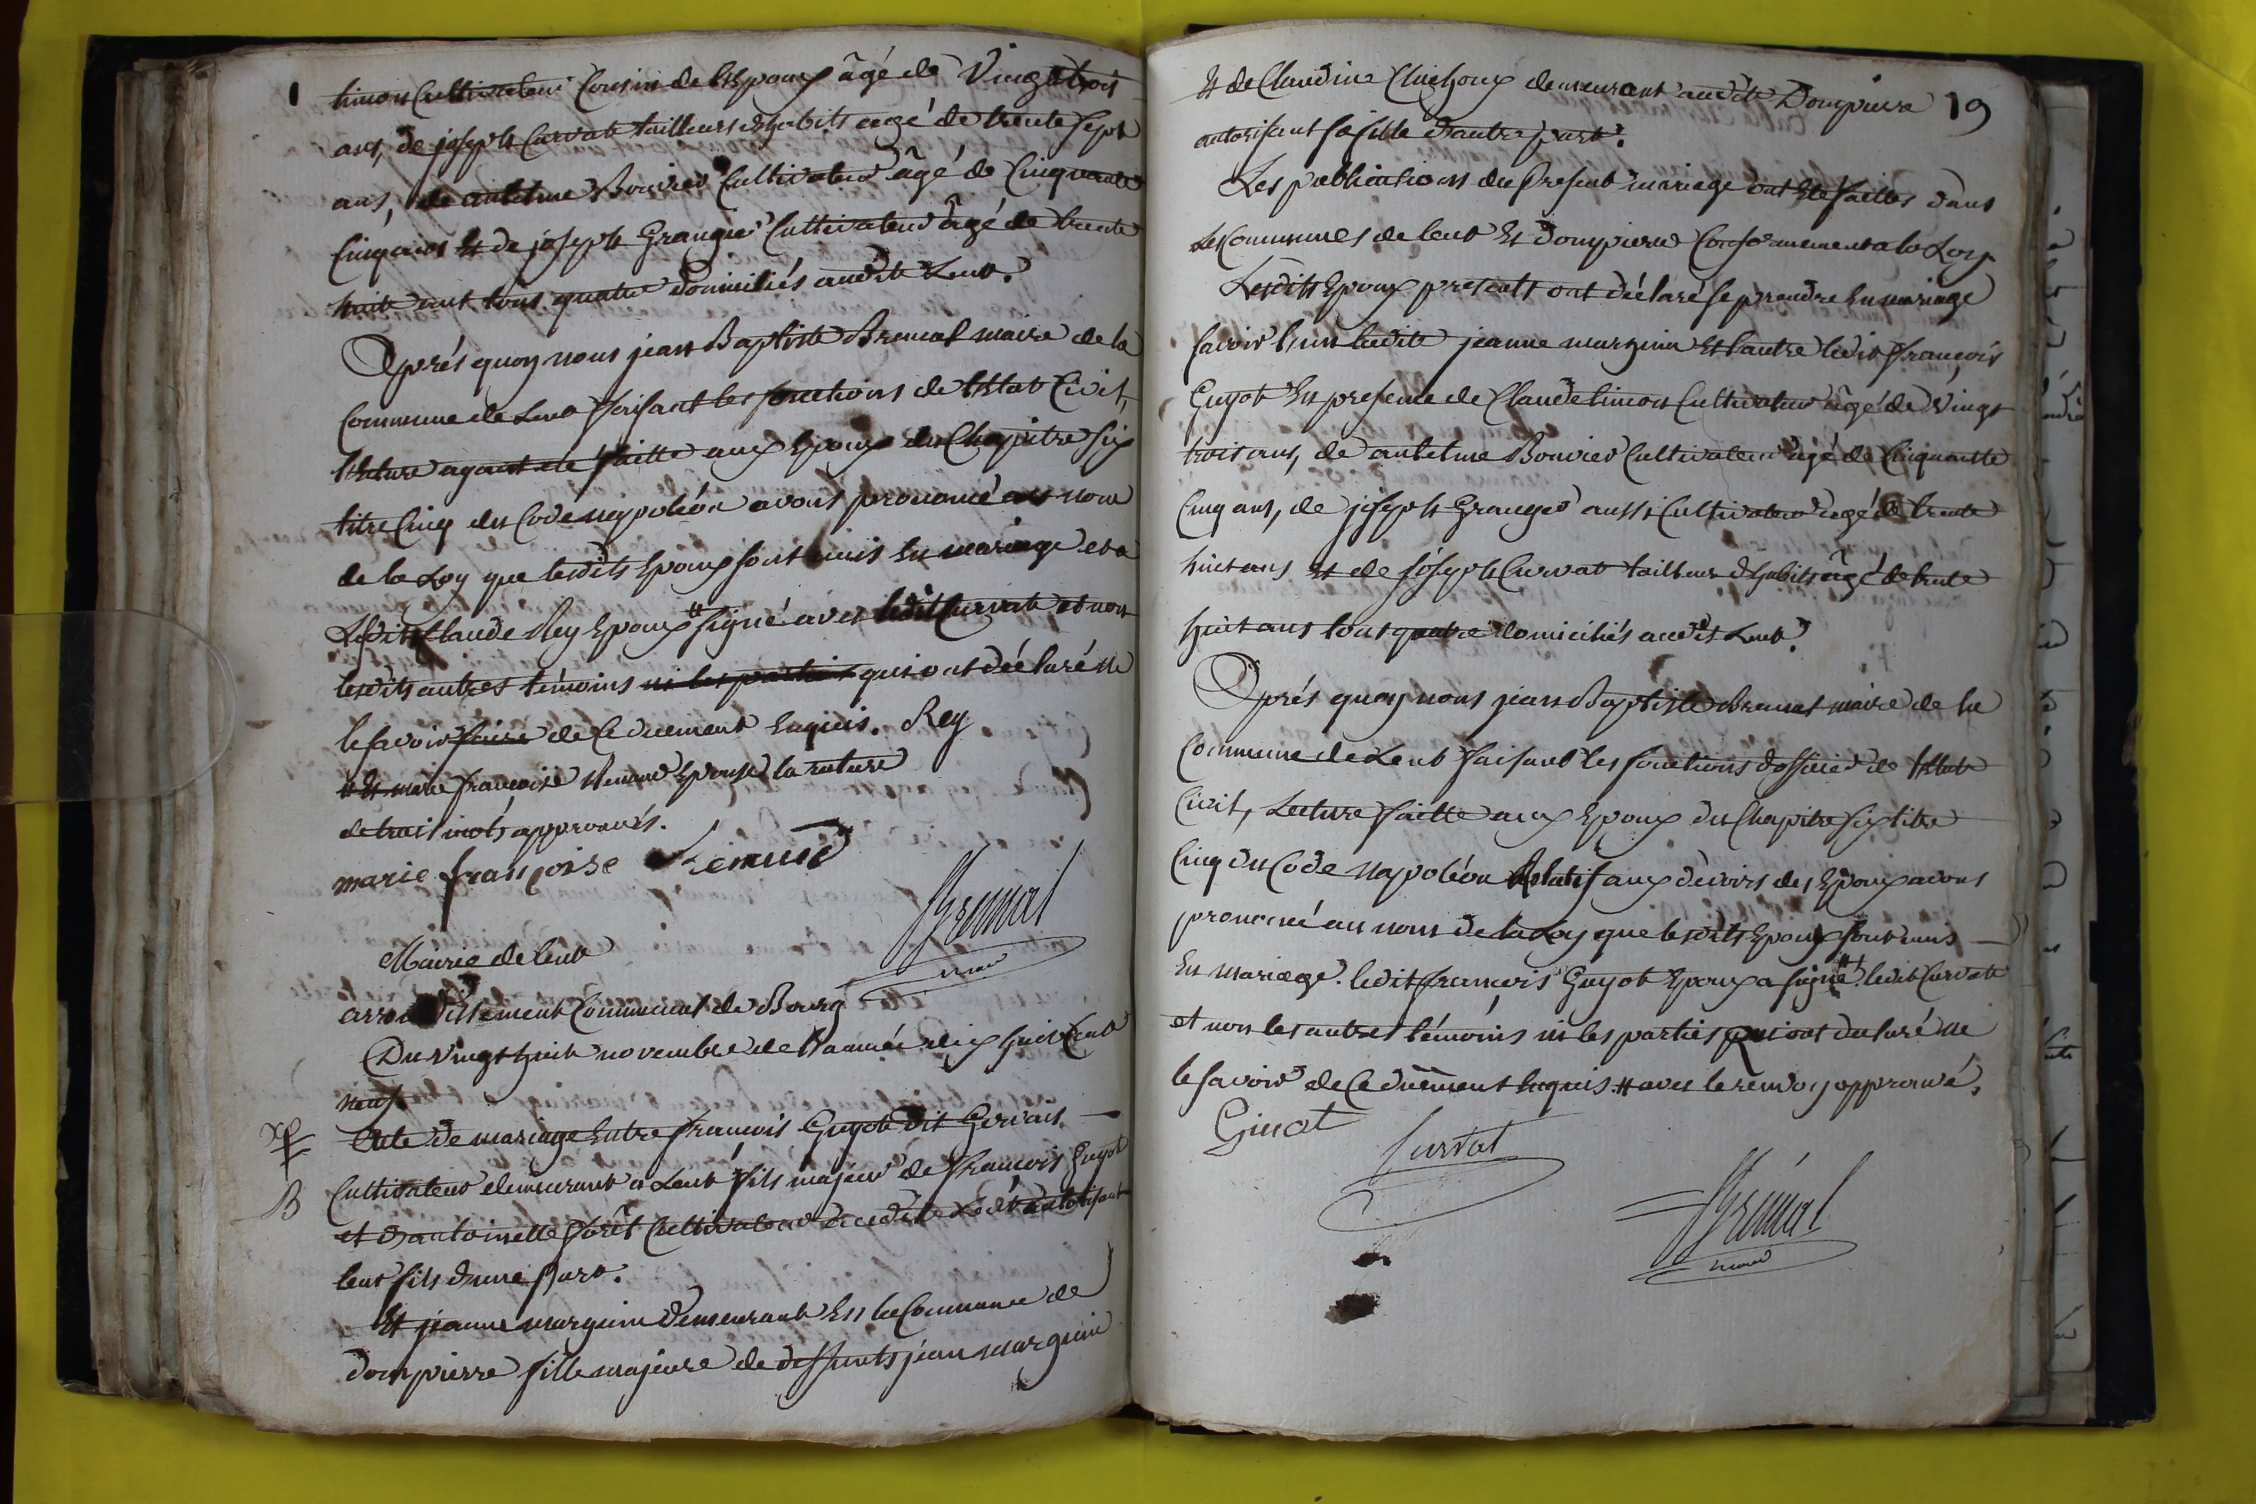 timon Cultivateur Cousin de L'Epoux âgé de Vingt trois
ans, de joseph Curvat tailleurs d'habits agé de trente sept
ans, de antelme Bouvier Cultivateur âgé de Cinquante
Cinq ans Et de joseph Granger Cultivateur âgé de trente
huit ans tous quatre domiciliés audit Lent.
Aprés quoy nous jean Baptiste Bremal maire de la
Commune de Lent faisant les fonctions de L'Etat Civil,
Lecture ayant été faitte aux Epoux du Chapitre six
titre Cinq du Code napoléon avons prononcé au nom
de la Loy que lesdits Epoux sont unis En mariage et a
Ledit Claude Rey Epoux # signé avec ledit Curvat et non
lesdits autres témoins ni les parties qui ont déclaré ne
le savoir faire de Ce duement Enquis. Rey
# Et marie françoise Epouse la rature
de trois mots approuvés.
marie françoise
Bremal
maire
Mairie de lent
arrondissement Communal de Bourg
Du Vingt huit novembre de L'année dix huit Cent
neuf
Acte de mariage Entre francois Guyot dit Gervais
B
Cultivateur demeurant a Lent fils majeur de francois Guyot
et d'antoinette forêt Cultivateur audit Lent autorisant
leur fils d'une part.
Et jeanne marguin demeurant En la Commune de
dompierre fille majeure de deffunts jean marguin
19
Et de Claudine Cluchoux demeurant audit Dompierre
autorisant sa fille d'autre part.
Les publications du Present mariage ont Eté faittes dans
Les Communes de lent Et dompierre Conformement a la Loy
Lesdits Epoux presents ont déclaré se prendre En mariage
savoir l'une ladite jeanne marguin Et l'autre ledit francois
Guyot En presence de Claude timon Cultivateur âgé de Vingt
trois ans, de antelme Bouvier Cultivateur agé de Cinquante
Cinq ans, de joseph Granger aussi Cultivateur agé de trente
huit ans Et de joseph Curvat tailleur d'habits âgé de trente
huit ans tous quatre domiciliés audit Lent.
Aprés quoy nous jean Baptiste Bremal maire de la
Commune de Lent faisant les fonctions d'officier de L'Etat
Civil, Lecture faitte aux Epoux du Chapitre six titre
Cinq du Code napoléon Relatif aux devoirs des Epoux avons
prononcé au nom de la Loy que lesdits Epoux sont unis
En mariage. ledit francois Guyot Epoux a signé # ledit Curvat
et non les autres témoins ni les parties qui ont declaré ne
le savoir de Ce duement Enquis. # avec le renvoy approuvé.
Guiot
Curvat
Bremal
maire